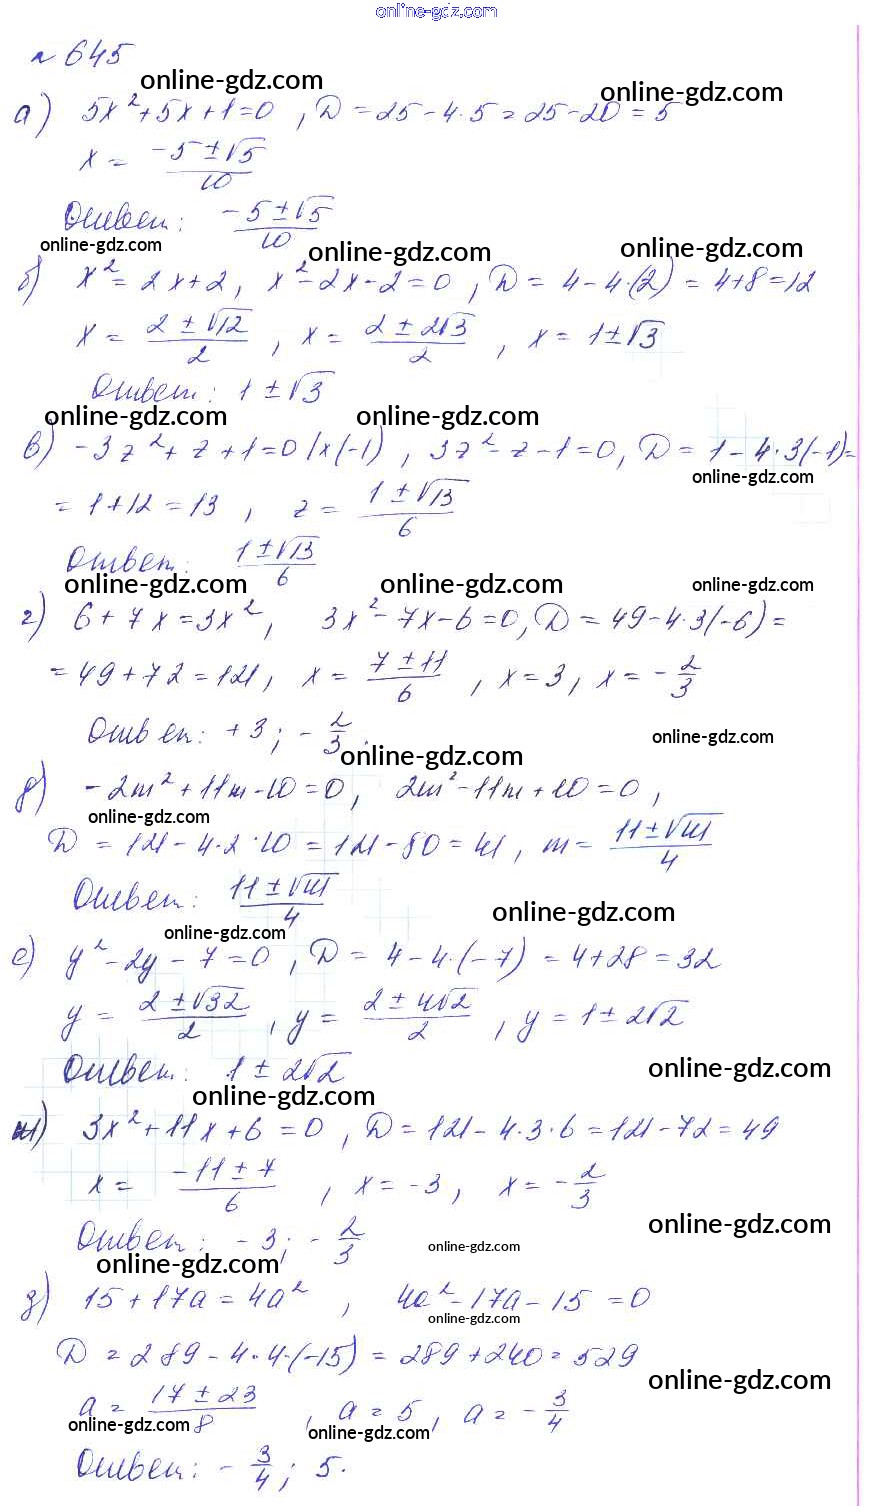 online-gdz.com
№ 645
online-gdz.com online-gdz.com
а) 5x² + 5x + 1 = 0 , D = 25 - 4·5 = 25 - 20 = 5
x = (-5 ± √5)/10
Ответ: (-5 ± √5)/10
online-gdz.com online-gdz.com online-gdz.com
б) x² = 2x + 2, x² - 2x - 2 = 0 , D = 4 - 4·(2) = 4 + 8 = 12
x = (2 ± √12)/2 , x = (2 ± 2√3)/2 , x = 1 ± √3
Ответ: 1 ± √3
online-gdz.com online-gdz.com
в) -3z² + z + 1 = 0 |x(-1) , 3z² - z - 1 = 0, D = 1 - 4·3(-1) =
online-gdz.com
= 1 + 12 = 13 , z = (1 ± √13)/6
Ответ: (1 ± √13)/6
online-gdz.com online-gdz.com online-gdz.com
г) 6 + 7x = 3x², 3x² - 7x - 6 = 0, D = 49 - 4·3(-6) =
= 49 + 72 = 121, x = (7 ± 11)/6 , x = 3, x = -2/3
Ответ: +3; -2/3.
online-gdz.com
online-gdz.com
д) -2m² + 11m - 10 = 0, 2m² - 11m + 10 = 0 ,
online-gdz.com
D = 121 - 4·2·10 = 121 - 80 = 41 , m = (11 ± √41)/4
Ответ: (11 ± √41)/4
online-gdz.com
online-gdz.com
е) y² - 2y - 7 = 0 , D = 4 - 4·(-7) = 4 + 28 = 32
y = (2 ± √32)/2 , y = (2 ± 4√2)/2 , y = 1 ± 2√2
Ответ: 1 ± 2√2
online-gdz.com
online-gdz.com
ж) 3x² + 11x + 6 = 0 , D = 121 - 4·3·6 = 121 - 72 = 49
x = (-11 ± 7)/6 , x = -3, x = -2/3
online-gdz.com
Ответ: -3; -2/3
online-gdz.com
online-gdz.com
з) 15 + 17a = 4a² , 4a² - 17a - 15 = 0
online-gdz.com
D = 289 - 4·4·(-15) = 289 + 240 = 529
online-gdz.com
a = (17 ± 23)/8 , a = 5, a = -3/4
online-gdz.com online-gdz.com
Ответ: -3/4; 5.